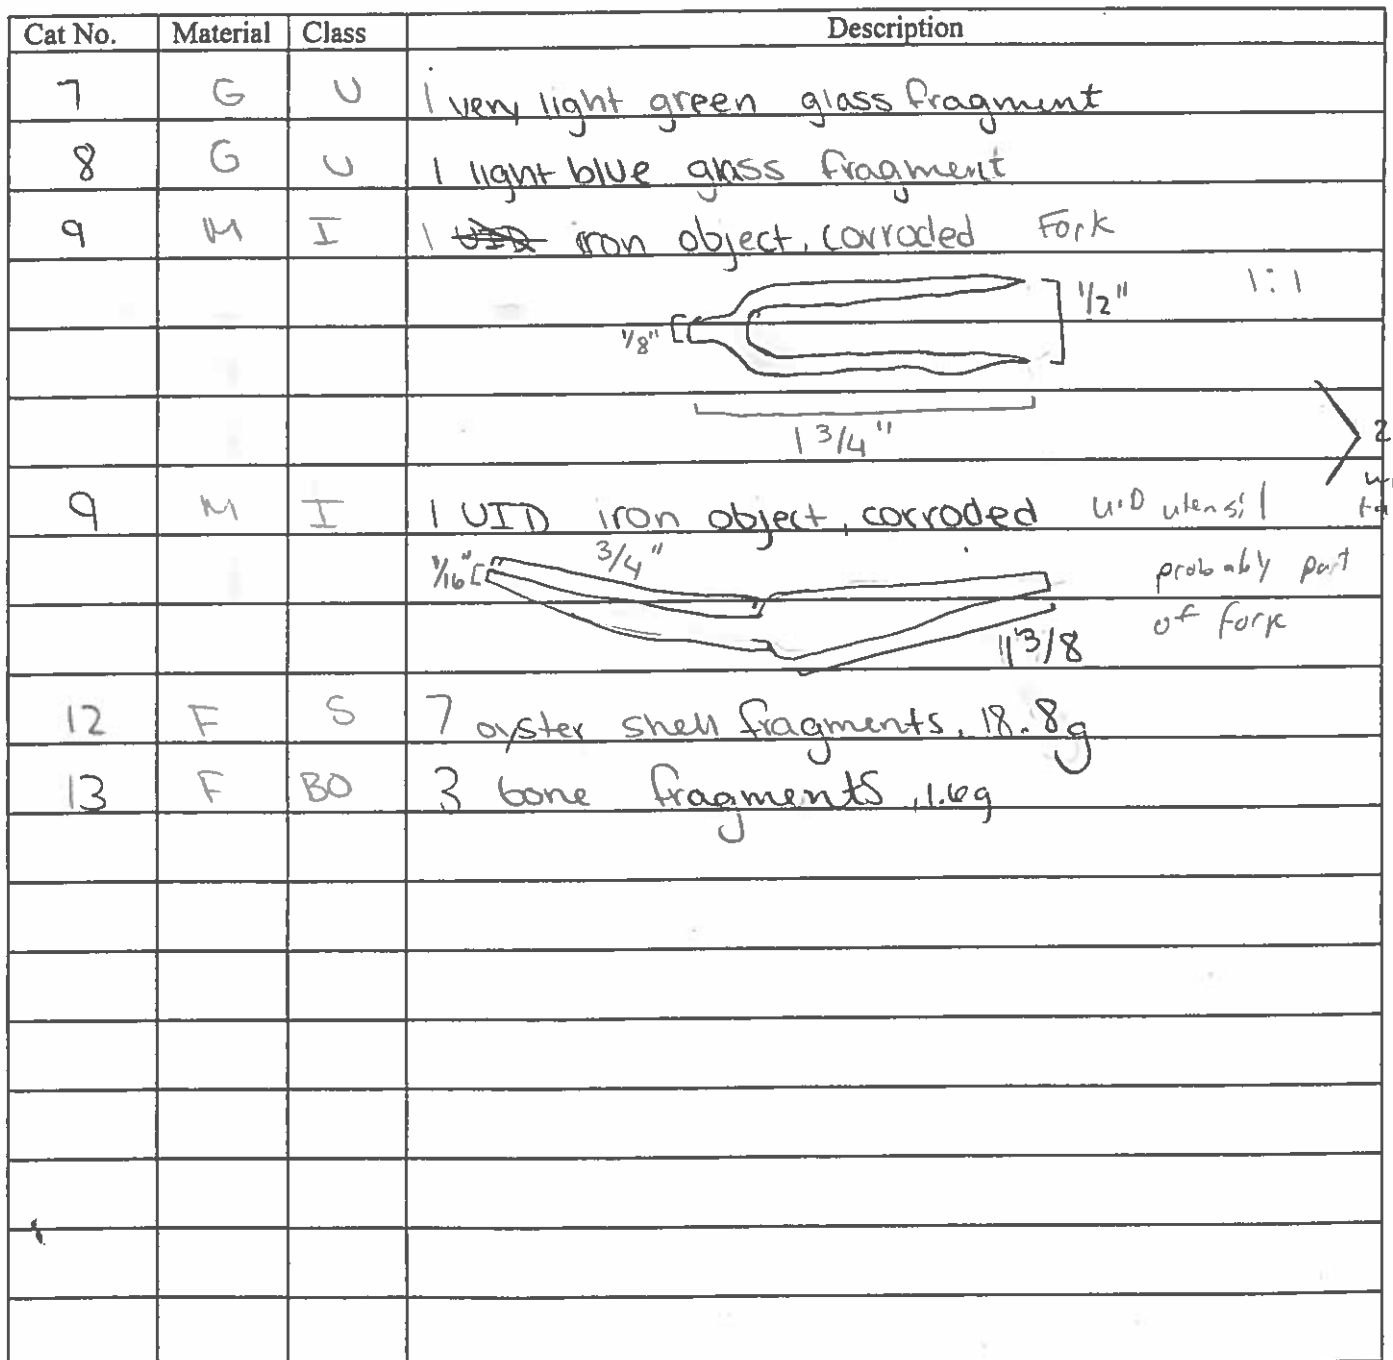 Cat No. Material Class Description
7 G U 1 very light green glass fragment
8 G U 1 light blue glass fragment
9 M I 1 UID iron object, corroded Fork
1/2" 1:1
1/8"
1 3/4"
2
9 M I 1 UID iron object, corroded UID utensil
1/16" 3/4" probably part
of fork
1 3/8
12 F S 7 oyster shell fragments, 18.8g
13 F BO 3 bone fragments, 1.6g